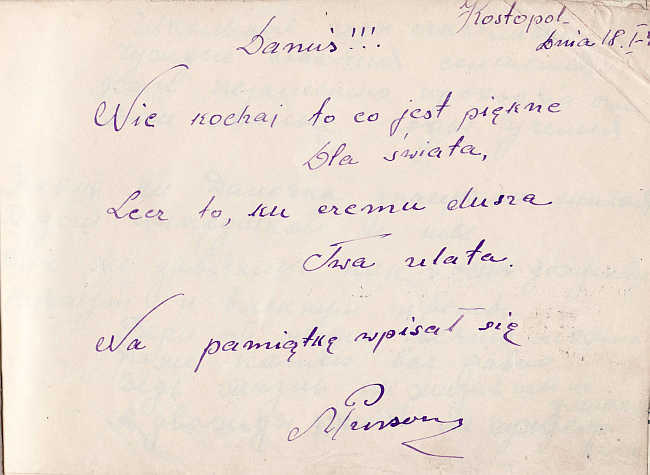 Kostopol
Dnia 18. I
Danuś!!!
Nie kochaj to co jest piękne
Dla świata,
Lecz to, ku czemu dusza
Twa ulata.
Na pamiątkę wpisał się